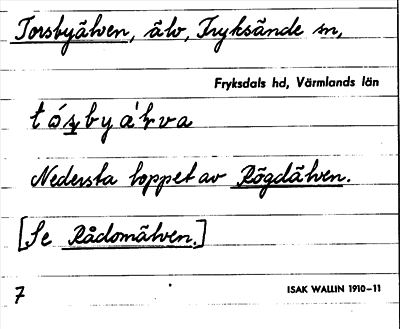 Torsbyälven, älv, Fryksände sn,
Fryksdals hd, Värmlands län
tó̱sbyàʹɫva
Nedersta loppet av Rögdälven.
[Se Rådomälven.]
7
ISAK WALLIN 1910–11